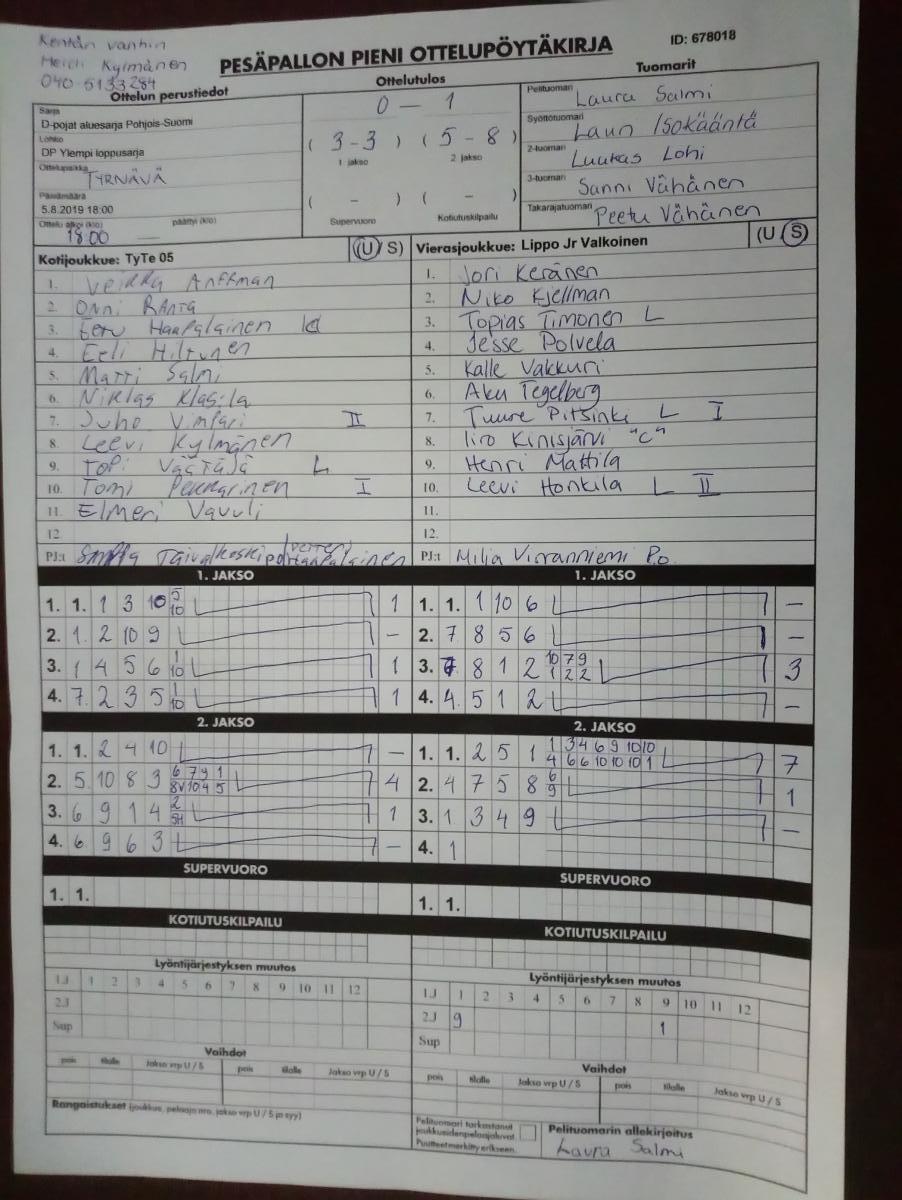 Kentän vanhin
Heidi Kylmänen
040-5133284
PESÄPALLON PIENI OTTELUPÖYTÄKIRJA
ID: 678018
Ottelun perustiedot
Sarja
D-pojat aluesarja Pohjois-Suomi
Lohko
DP Ylempi loppusarja
Ottelupaikka
TYRNÄVÄ
Päivämäärä
5.8.2019 18:00
Ottelu alkoi (klo) päättyi (klo)
18:00 —
Ottelutulos
0 - 1
( 3-3 ) ( 5-8 )
1. jakso 2. jakso
( - ) ( - )
Supervuoro Kotiutuskilpailu
Tuomarit
Pelituomari Laura Salmi
Syöttötuomari Lauri Isokääntä
2-tuomari Luukas Lohi
3-tuomari Sanni Vähänen
Takarajatuomari Peetu Vähänen
Kotijoukkue: TyTe 05 (U / S)
1. Veikka Anttman
2. Onni Ranta
3. Eetu Haapalainen
4. Eeli Hiltunen
5. Matti Salmi
6. Niklas
7. Juho II
8. Leevi Kylmänen
9. Topi Väätäjä L
10. Tomi Pekkarinen I
11. Elmeri Vavuli
12.
PJ:t Taivalkoski Haapalainen
Vierasjoukkue: Lippo Jr Valkoinen (U S)
1. Jori Keränen
2. Niko Kjellman
3. Topias Timonen L
4. Jesse Polvela
5. Kalle Vakkuri
6. Aku Tegelberg
7. Tuure Pitsinki L I
8. Iiro Kinisjärvi "C"
9. Henri Mattila
10. Leevi Honkila L II
11.
12.
PJ:t Milja Virranniemi P.o
1. JAKSO
1. 1. 1 3 10 5 10 1
2. 1. 2 10 9 -
3. 1 4 5 6 1 10 1
4. 7. 2 3 5 1 10 1
2. JAKSO
1. 1. 2 4 10 -
2. 5 10 8 3 6 7 9 1 8V 10 4 5 4
3. 6 9 1 4 2 5H 1
4. 6 9 6 3 -
SUPERVUORO
1. 1.
KOTIUTUSKILPAILU
Lyöntijärjestyksen muutos
1.J 1 2 3 4 5 6 7 8 9 10 11 12
2.J
Sup
Vaihdot
pois tilalle Jakso vrp U / S pois tilalle Jakso vrp U / S
Rangaistukset (joukkue, pelaaja nro, jakso vrp U / S ja syy)
1. JAKSO
1. 1. 1 10 6 -
2. 7 8 5 6 -
3. 7 8 1 2 10 7 9 1 2 2 3
4. 4 5 1 2 -
2. JAKSO
1. 1. 2 5 1 1 3 4 6 9 10 10 4 6 6 10 10 10 1 7
2. 4 7 5 8 6 9 1
3. 1 3 4 9 -
4. 1
SUPERVUORO
1. 1.
KOTIUTUSKILPAILU
Lyöntijärjestyksen muutos
1.J 1 2 3 4 5 6 7 8 9 10 11 12
2.J 9 1
Sup
Vaihdot
pois tilalle Jakso vrp U / S pois tilalle Jakso vrp U / S
Pelituomari tarkastanut
joukkueiden pelaajaluvat.
Puutteet merkitty erikseen.
Pelituomarin allekirjoitus
Laura Salmi